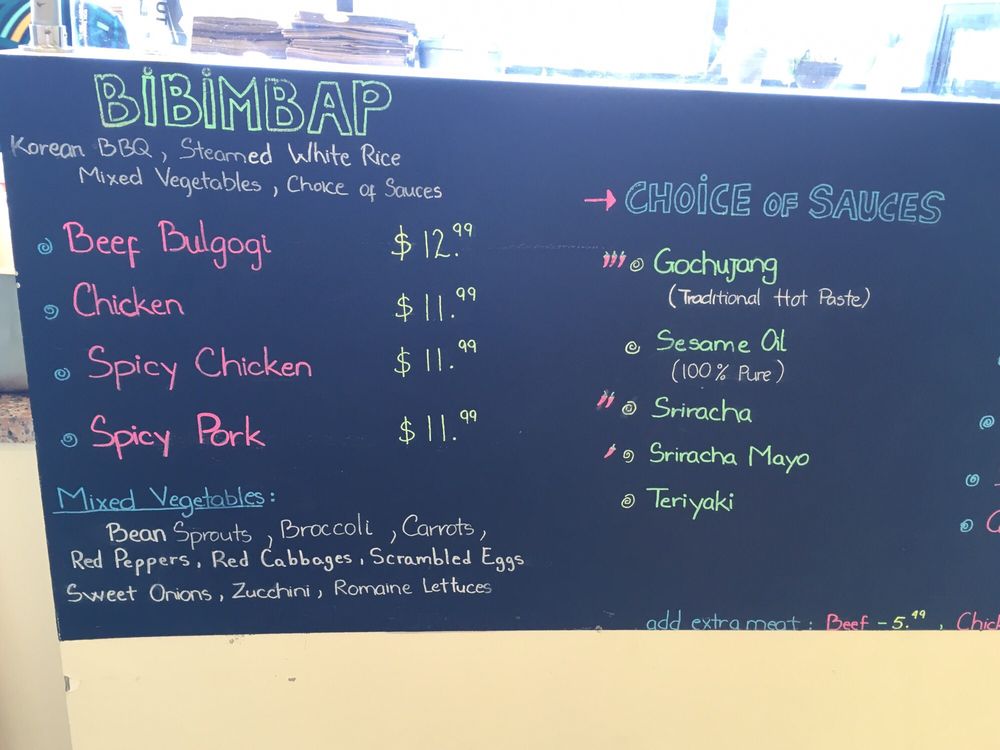 BIBIMBAP
Korean BBQ, Steamed White Rice
Mixed Vegetables, Choice of Sauces
Beef Bulgogi $12.99
Chicken $11.99
Spicy Chicken $11.99
Spicy Pork $11.99
Mixed Vegetables:
Bean Sprouts, Broccoli, Carrots,
Red Peppers, Red Cabbages, Scrambled Eggs
Sweet Onions, Zucchini, Romaine Lettuces
→ CHOICE OF SAUCES
Gochujang
(Traditional Hot Paste)
Sesame Oil
(100% Pure)
Sriracha
Sriracha Mayo
Teriyaki
add extra meat: Beef - 5.49,